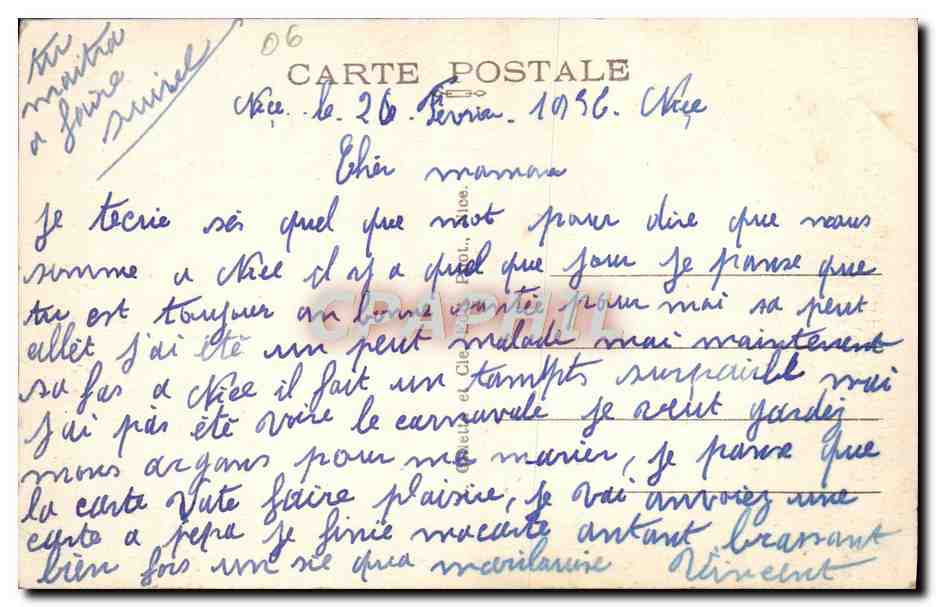 tu
maitra
a faire
suivel
06
CARTE POSTALE
Nice. le. 26. Fevrier. 1936. Nice
Cher maman
je tecrie sés quel que mot pour dire que nous
somme a Nice il y a quel que jour je panse que
tu est toujour an bonne santée pour moi sa peut
allét j'ai été un peut malade mai maintenent
sa fas a Nice il fait un tampts surpairbl mai
j'ai pas été voire le carnavale je veut gardéz
mons argans pour me marier, je panse que
la carte vate faire plaisire, je vai anvoiez une
carte a pépa je finie macarte antant brassant
bien fois un sie qua marilouise Vincent
et Cie, Phot., Nice.
CPAPHIL